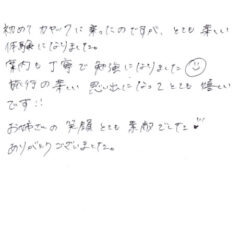 初めてカヤックに乗ったのですが、とても楽しい
体験になりました。
案内も丁寧で勉強になりました
旅行の楽しい思い出になってとても嬉しい
です!!
お姉さんの笑顔とても素敵でした
ありがとうございました。